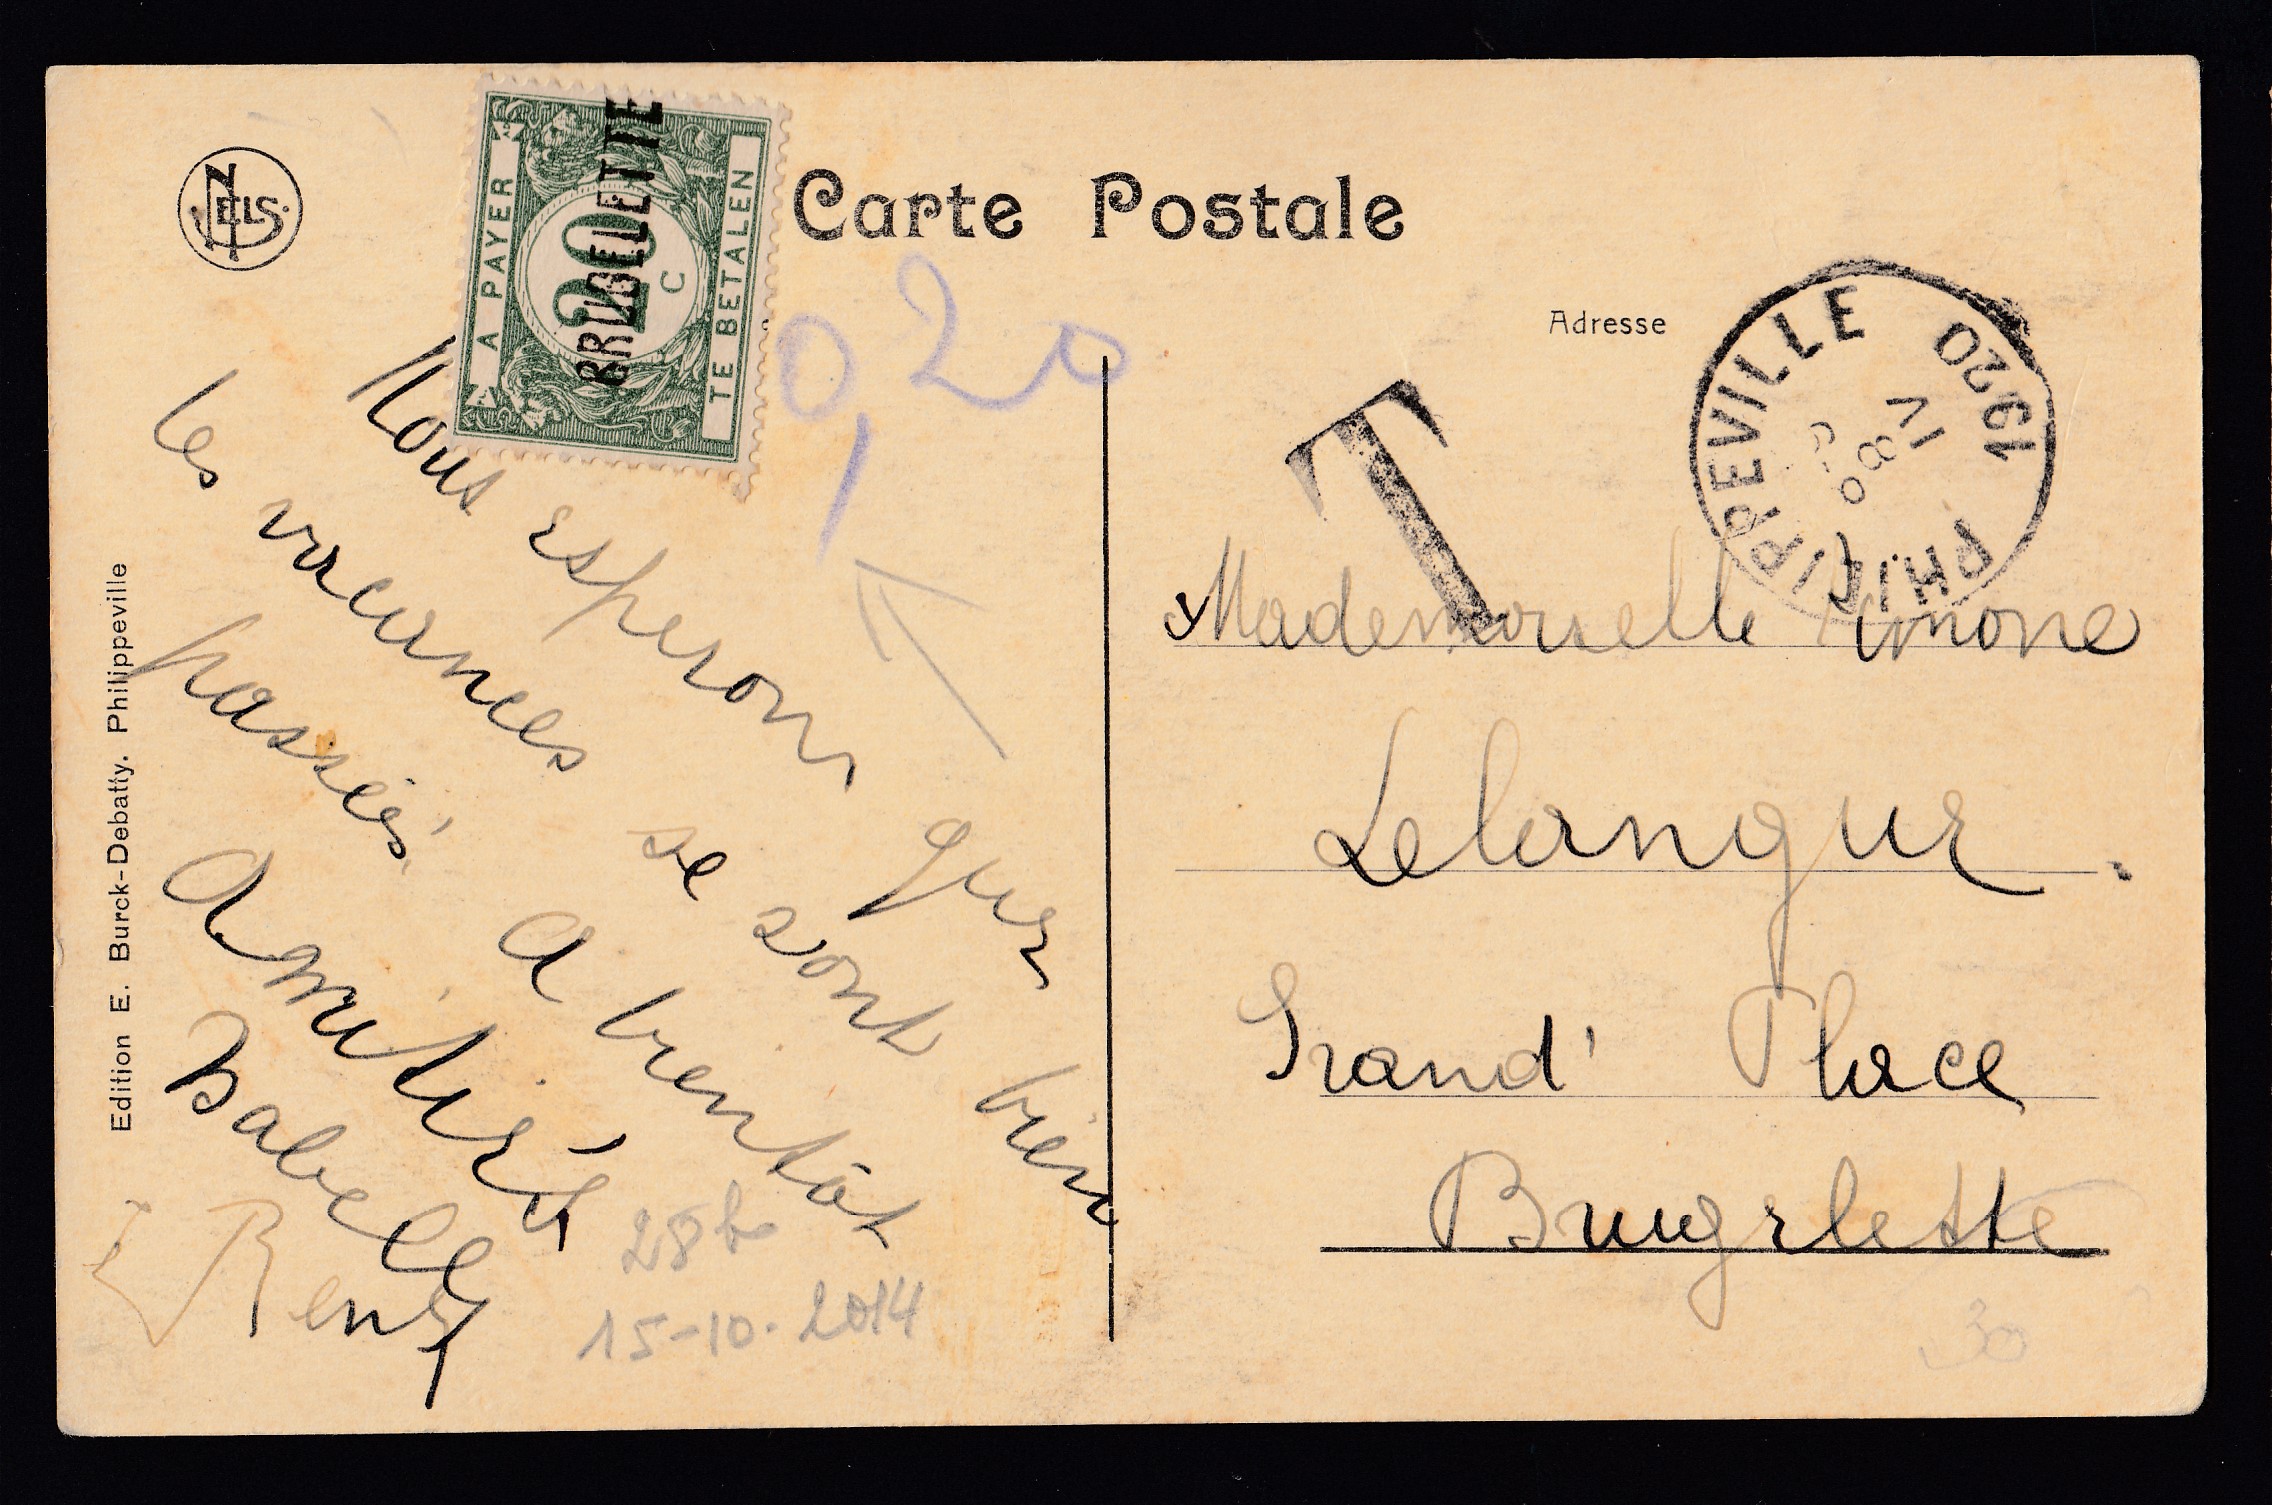 NELS.
A PAYER
20 C
TE BETALEN
BRUGELETTE
Carte Postale
0,20
Adresse
PHILIPPEVILLE
1920
T
Nous esperons que
les vacances se sont bien
passées.
A bientôt
Amitiés
Isabelle
René
28 b
15-10-2014
Edition E. Burck-Debatty. Philippeville
Mademoiselle Simone
Lelangue.
Grand' Place
Brugelette
30